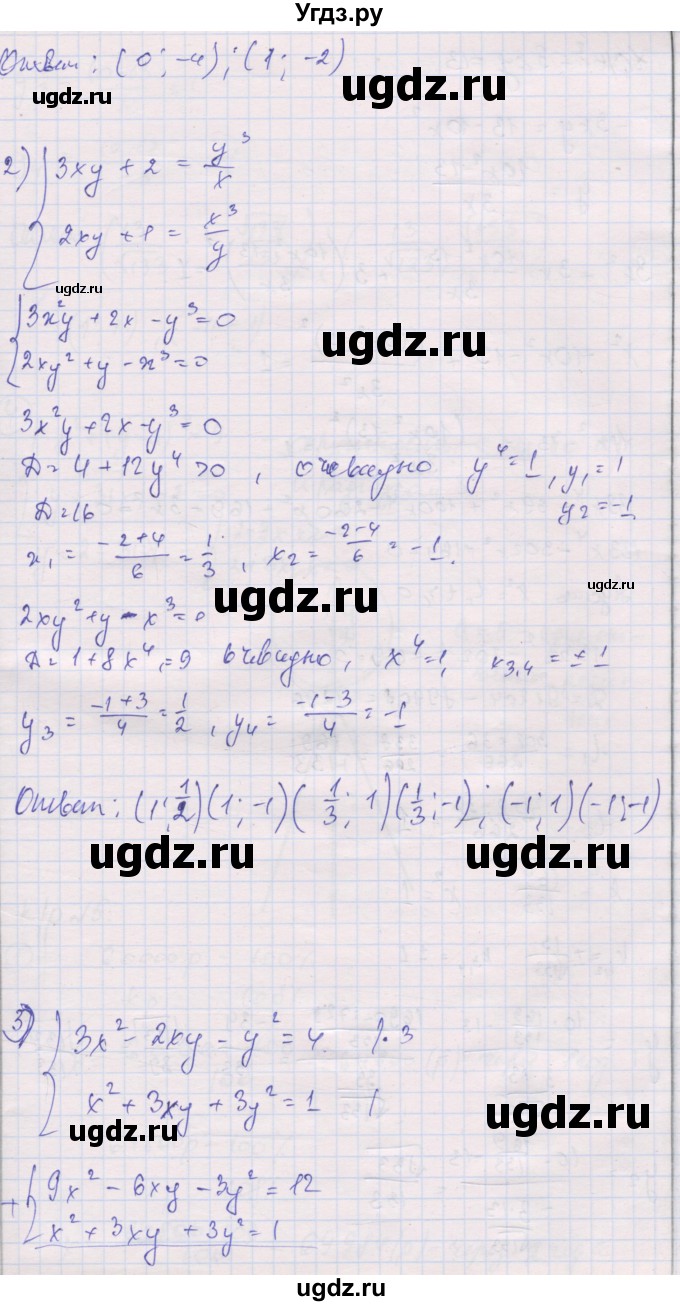 Угдз.ру
Ответ: (0; -4); (1; -2)
ugdz.ru ugdz.ru
2) { 3xy + 2 = y³/x
2xy + 1 = x³/y
ugdz.ru
{ 3x²y + 2x - y³ = 0
2xy² + y - x³ = 0
ugdz.ru
3x²y + 2x - y³ = 0
D = 4 + 12y⁴ > 0, очевидно y⁴ = 1, y₁ = 1
D = 16 y₂ = -1
x₁ = (-2+4)/6 = 1/3, x₂ = (-2-4)/6 = -1.
ugdz.ru ugdz.ru
2xy² + y - x³ = 0
D = 1 + 8x⁴ = 9 очевидно, x⁴ = 1, x₃,₄ = ± 1
y₃ = (-1+3)/4 = 1/2, y₄ = (-1-3)/4 = -1
Ответ: (1; 1/2)(1; -1)(1/3; 1)(1/3; -1); (-1; 1)(-1; -1)
ugdz.ru ugdz.ru
3) { 3x² - 2xy - y² = 4 |·3
x² + 3xy + 3y² = 1 |
ugdz.ru ugdz.ru
+ { 9x² - 6xy - 3y² = 12
x² + 3xy + 3y² = 1
ugdz.ru